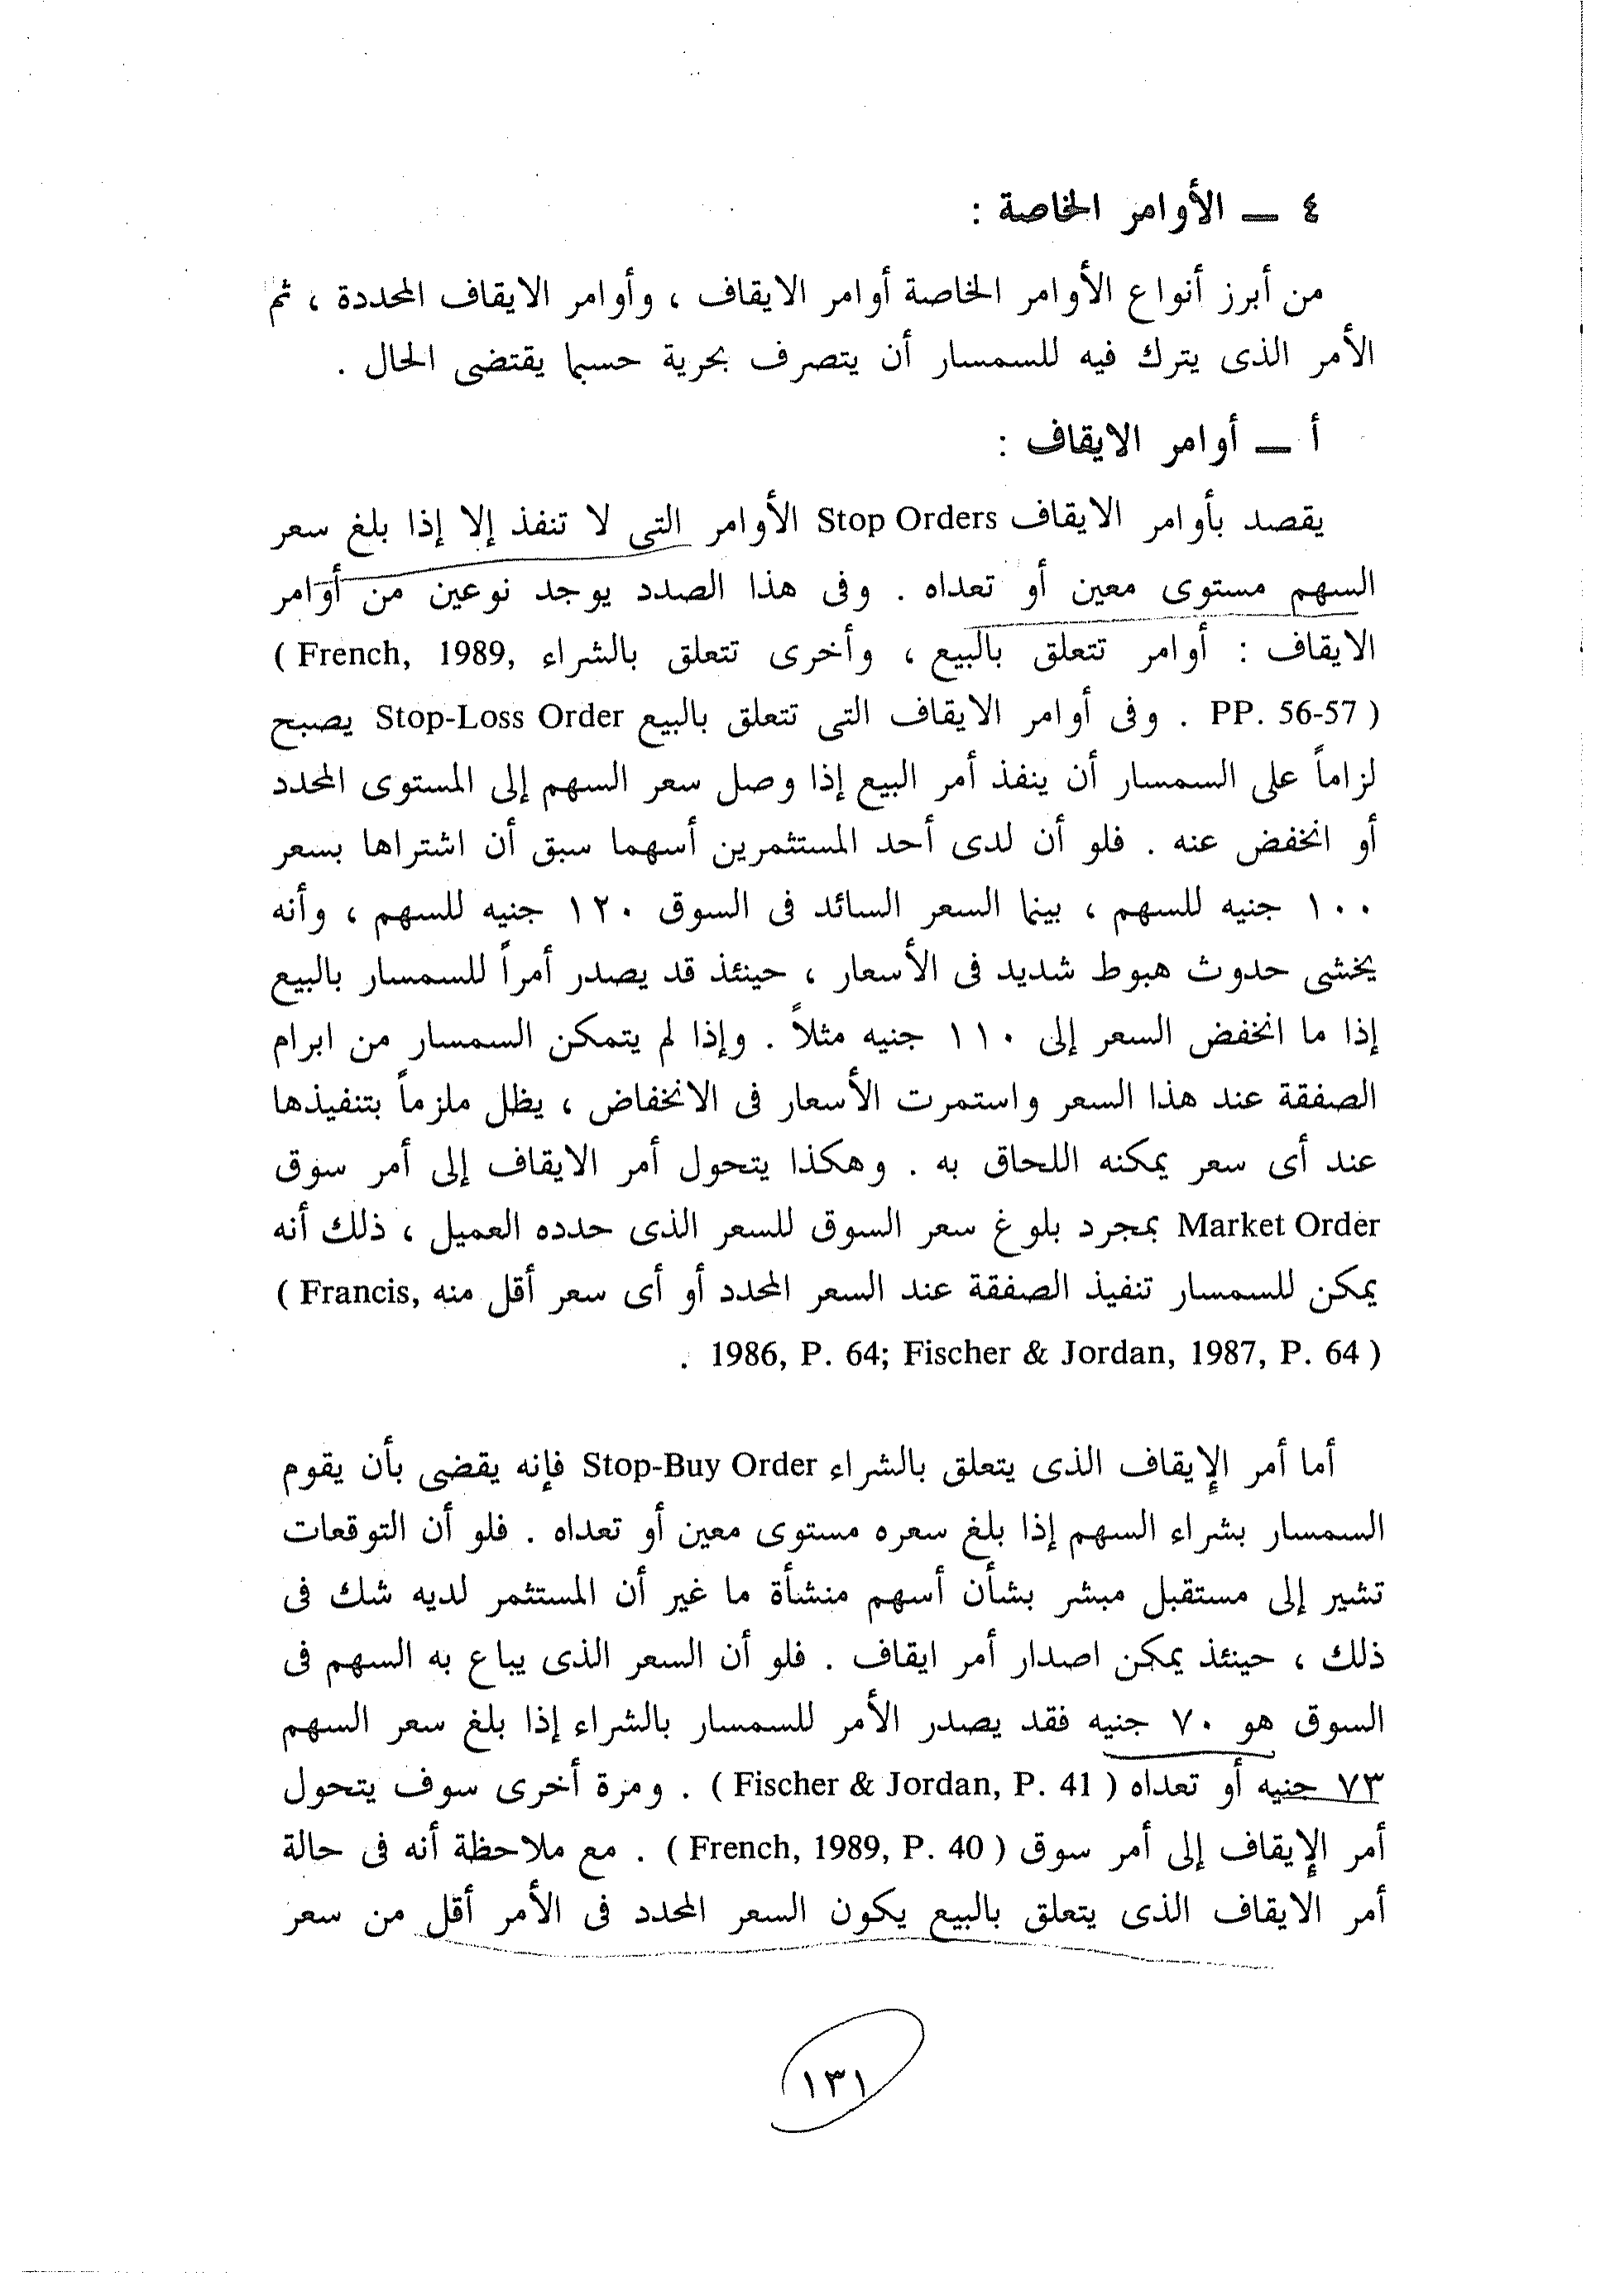 ٤ ــ الأوامر الخاصة :
من أبرز أنواع الأوامر الخاصة أوامر الايقاف ، وأوامر الايقاف المحددة ، ثم
الأمر الذى يترك فيه للسمسار أن يتصرف بحرية حسبما يقتضى الحال .
أ ــ أوامر الايقاف :
يقصد بأوامر الايقاف Stop Orders الأوامر التى لا تنفذ إلا إذا بلغ سعر
السهم مستوى معين أو تعداه . وفى هذا الصدد يوجد نوعين من أوامر
الايقاف : أوامر تتعلق بالبيع ، وأخرى تتعلق بالشراء ( French, 1989,
PP. 56-57 ) . وفى أوامر الايقاف التى تتعلق بالبيع Stop-Loss Order يصبح
لزاماً على السمسار أن ينفذ أمر البيع إذا وصل سعر السهم إلى المستوى المحدد
أو انخفض عنه . فلو أن لدى أحد المستثمرين أسهما سبق أن اشتراها بسعر
١٠٠ جنيه للسهم ، بينما السعر السائد فى السوق ١٢٠ جنيه للسهم ، وأنه
يخشى حدوث هبوط شديد فى الأسعار ، حينئذ قد يصدر أمراً للسمسار بالبيع
إذا ما انخفض السعر إلى ١١٠ جنيه مثلاً . وإذا لم يتمكن السمسار من ابرام
الصفقة عند هذا السعر واستمرت الأسعار فى الانخفاض ، يظل ملزماً بتنفيذها
عند أى سعر يمكنه اللحاق به . وهكذا يتحول أمر الايقاف إلى أمر سوق
Market Order بمجرد بلوغ سعر السوق للسعر الذى حدده العميل ، ذلك أنه
يمكن للسمسار تنفيذ الصفقة عند السعر المحدد أو أى سعر أقل منه ( Francis,
1986, P. 64; Fischer & Jordan, 1987, P. 64 ) .
أما أمر الإيقاف الذى يتعلق بالشراء Stop-Buy Order فإنه يقضى بأن يقوم
السمسار بشراء السهم إذا بلغ سعره مستوى معين أو تعداه . فلو أن التوقعات
تشير إلى مستقبل مبشر بشأن أسهم منشأة ما غير أن المستثمر لديه شك فى
ذلك ، حينئذ يمكن اصدار أمر ايقاف . فلو أن السعر الذى يباع به السهم فى
السوق هو ٧٠ جنيه فقد يصدر الأمر للسمسار بالشراء إذا بلغ سعر السهم
٧٣ جنيه أو تعداه ( Fischer & Jordan, P. 41 ) . ومرة أخرى سوف يتحول
أمر الإيقاف إلى أمر سوق ( French, 1989, P. 40 ) . مع ملاحظة أنه فى حالة
أمر الايقاف الذى يتعلق بالبيع يكون السعر المحدد فى الأمر أقل من سعر
١٣١